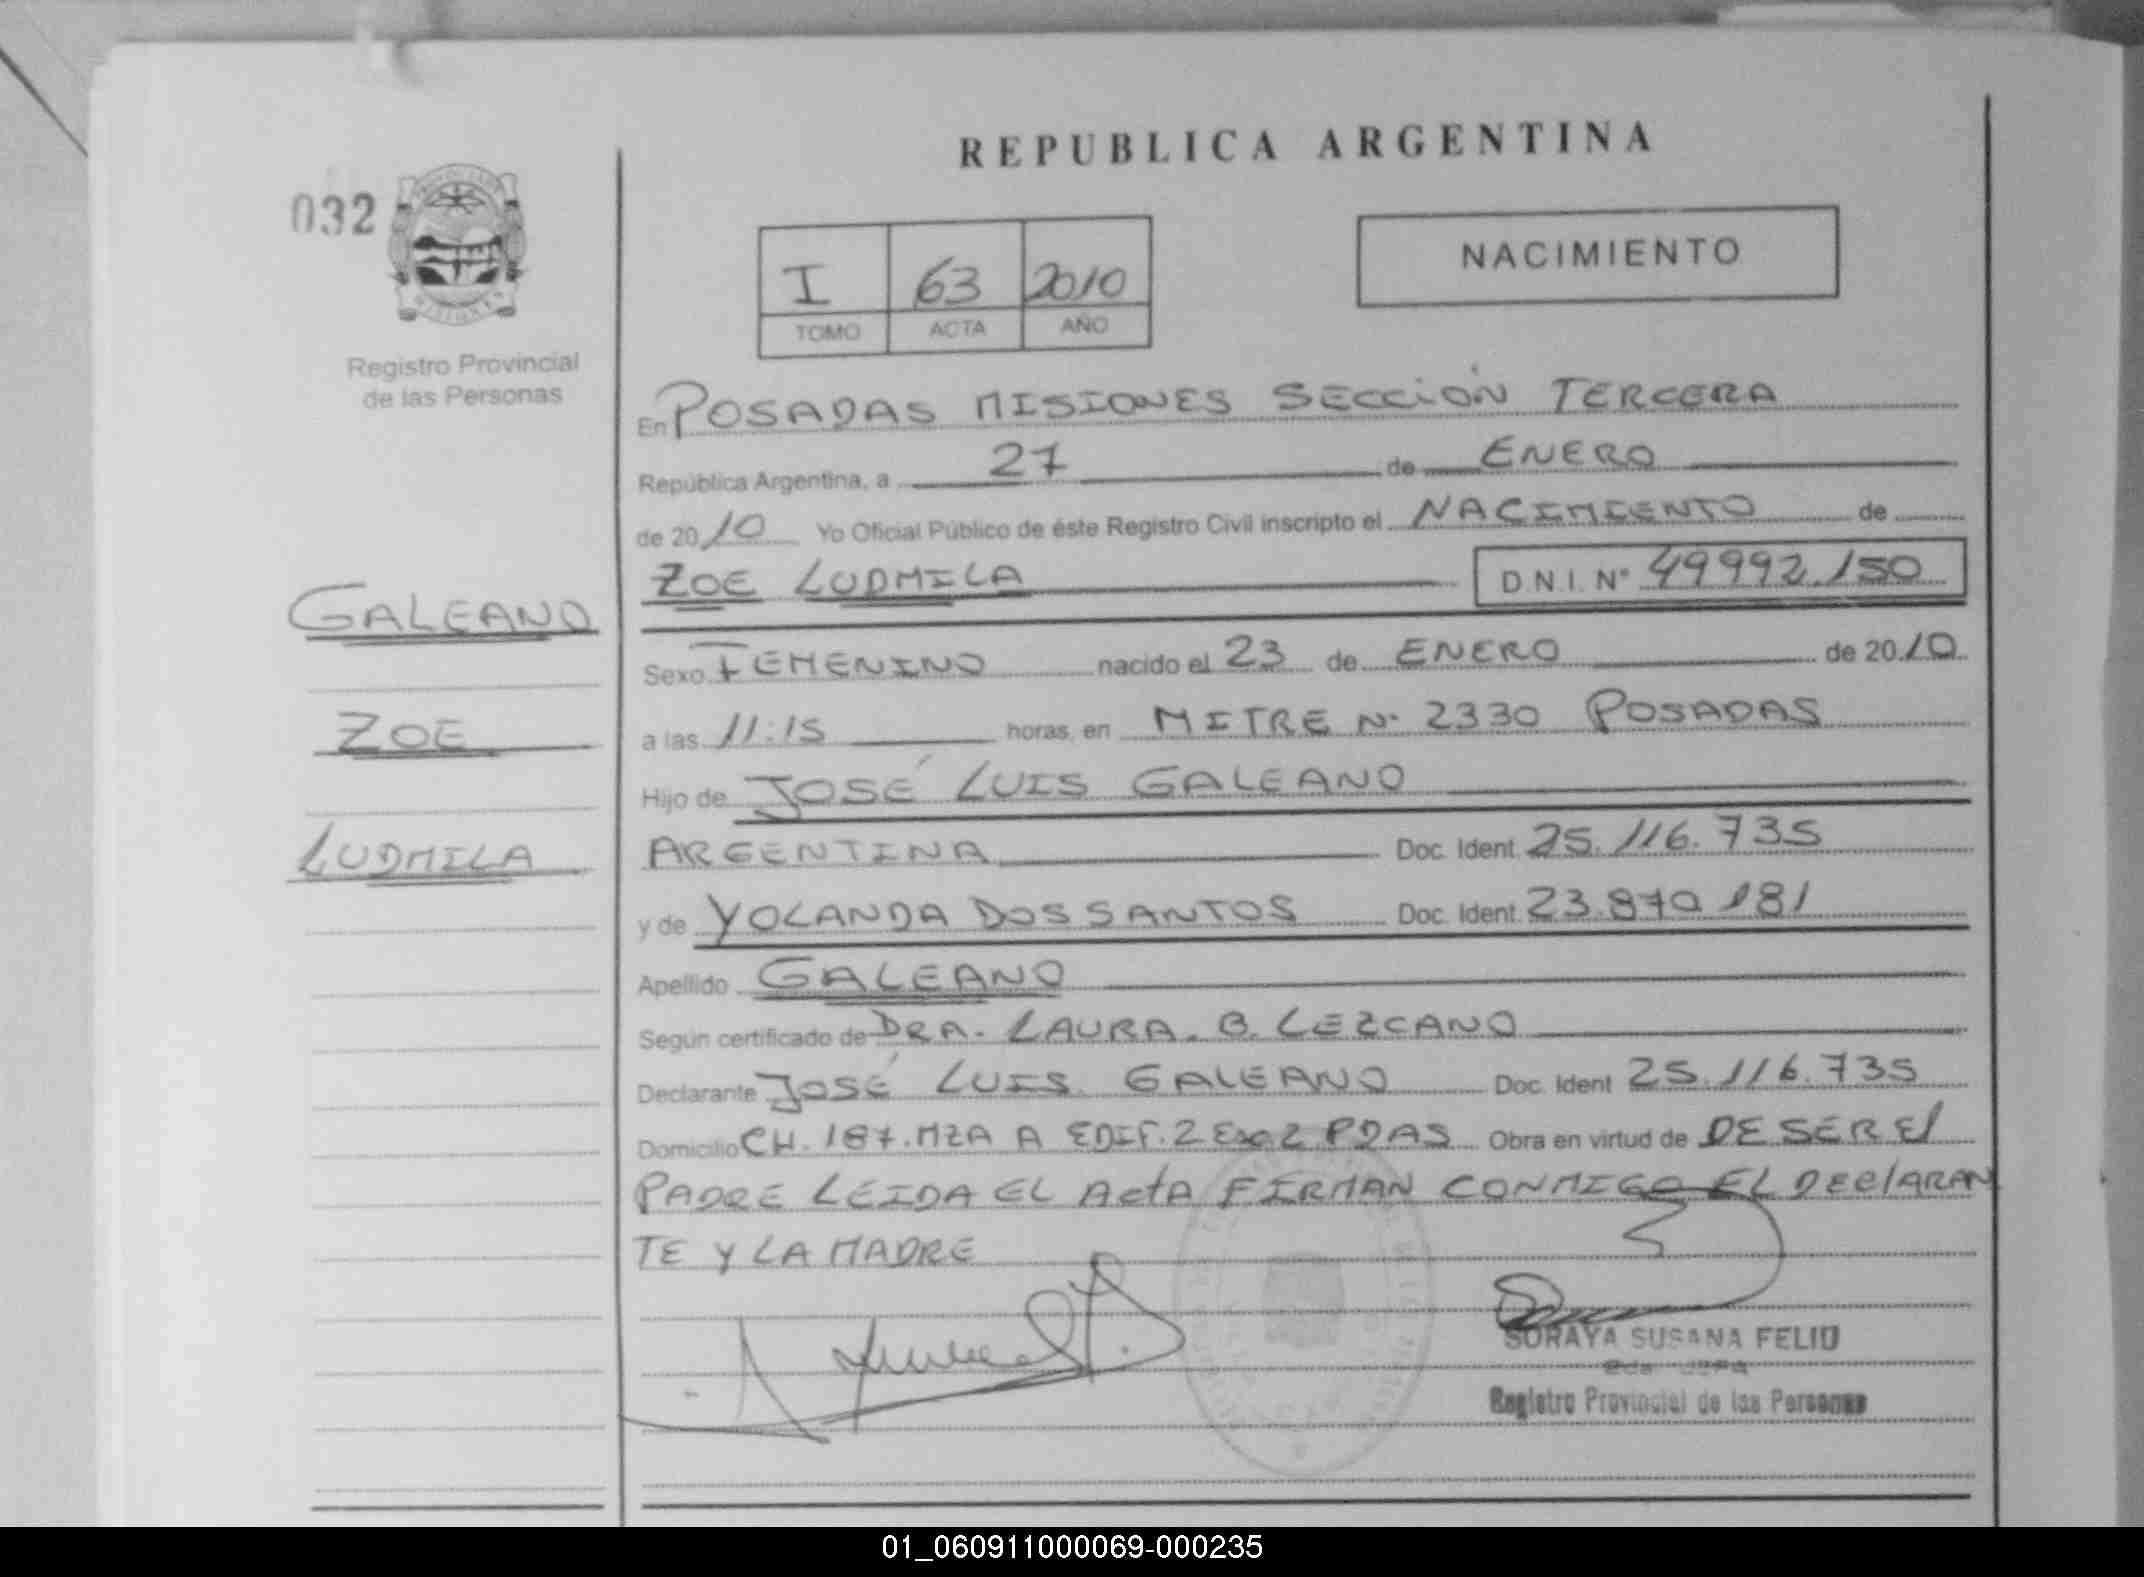 REPUBLICA ARGENTINA
032
I 63 2010
TOMO ACTA AÑO
NACIMIENTO
Registro Provincial
de las Personas
En POSADAS MISIONES SECCIÓN TERCERA
República Argentina, a 27 de ENERO
de 2010 Yo Oficial Público de éste Registro Civil inscripto el NACIMIENTO de
ZOE LUDMILA D.N.I. Nº 49992.150
GALEANO
ZOE
LUDMILA
Sexo FEMENINO nacido el 23 de ENERO de 2010
a las 11:15 horas, en MITRE Nº 2330 POSADAS
Hijo de JOSÉ LUIS GALEANO
ARGENTINA Doc. Ident. 25.116.735
y de YOLANDA DOS SANTOS Doc. Ident. 23.870.181
Apellido GALEANO
Según certificado de DRA. LAURA. B. LEZCANO
Declarante JOSÉ LUIS GALEANO Doc. Ident 25.116.735
Domicilio CH. 187. MZA A EDIF. 2 2 PDAS Obra en virtud de DE SER El
PADRE LEIDA EL ActA FIRMAN CONMIGO EL DEClARAN
TE Y LA MADRE
SORAYA SUSANA FELIU
Registro Provincial de las Personas
01_060911000069-000235